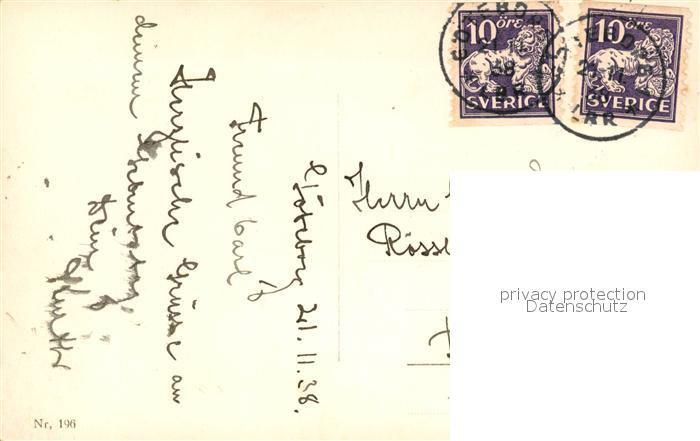 Göteborg 21.11.38.
Freund Carl
Herzliche Grüsse an
deinem Geburtstag,
Herrn
Röss
10 ÖRE
SVERIGE
10 ÖRE
SVERIGE
GÖTEBORG
LBR
privacy protection
Datenschutz
Nr, 196